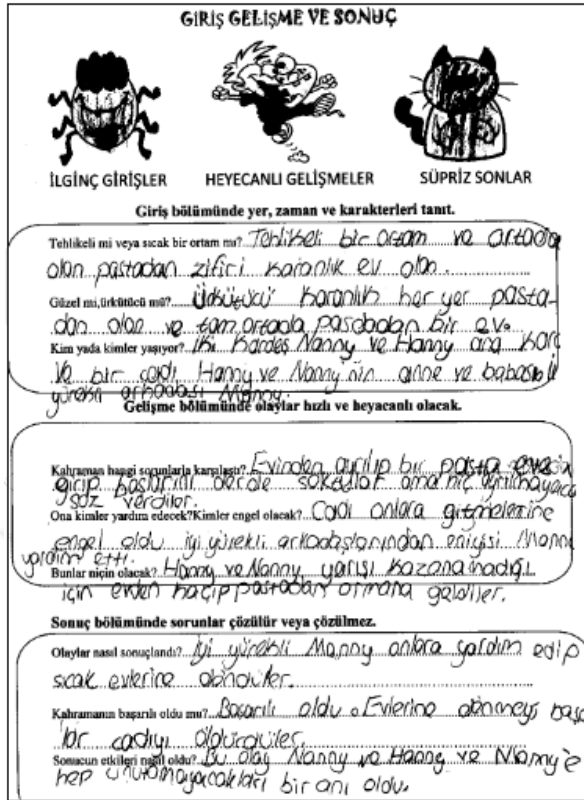 GİRİŞ GELİŞME VE SONUÇ
İLGİNÇ GİRİŞLER HEYECANLI GELİŞMELER SÜPRİZ SONLAR
Giriş bölümünde yer, zaman ve karakterleri tanıt.
Tehlikeli mi veya sıcak bir ortam mı? Tehlikeli bir ortam ve ortada
olan pastadan zifiri karanlık ev olan.
Güzel mi,ürkütücü mü? Ürkütücü karanlık her yer pasta-
dan olan ve tam ortada bir ev.
Kim yada kimler yaşıyor? İki kardeş Nanny ve Hanny ana
ve bir cadı Hanny ve Nanny'nin anne ve babası
yürekli arkadaşı Manny.
Gelişme bölümünde olaylar hızlı ve heyecanlı olacak.
Kahraman hangi sorunlarla karşılaştı? Evinden ayrılıp bir pasta evine
girip başlarını derde soktular ama hiç
söz verdiler.
Ona kimler yardım edecek?Kimler engel olacak? Cadı onlara gitmelerine
engel oldu iyi yürekli arkadaşlarından eniyisi Manny
yardım etti.
Bunlar niçin olacak? Hanny ve Nanny yarışı kazanamadığı
için evden kaçıp pastadan ormana geldiler.
Sonuç bölümünde sorunlar çözülür veya çözülmez.
Olaylar nasıl sonuçlandı? İyi yürekli Manny onlara yardım edip
sıcak evlerine döndüler.
Kahramanın başarılı oldu mu? Başarılı oldu. Evlerine dönmeyi
cadıyı öldürdüler.
Sonucun etkileri nasıl oldu? Bu olay Nanny ve Hanny ve Manny'e
hep unutamayacakları bir anı oldu.